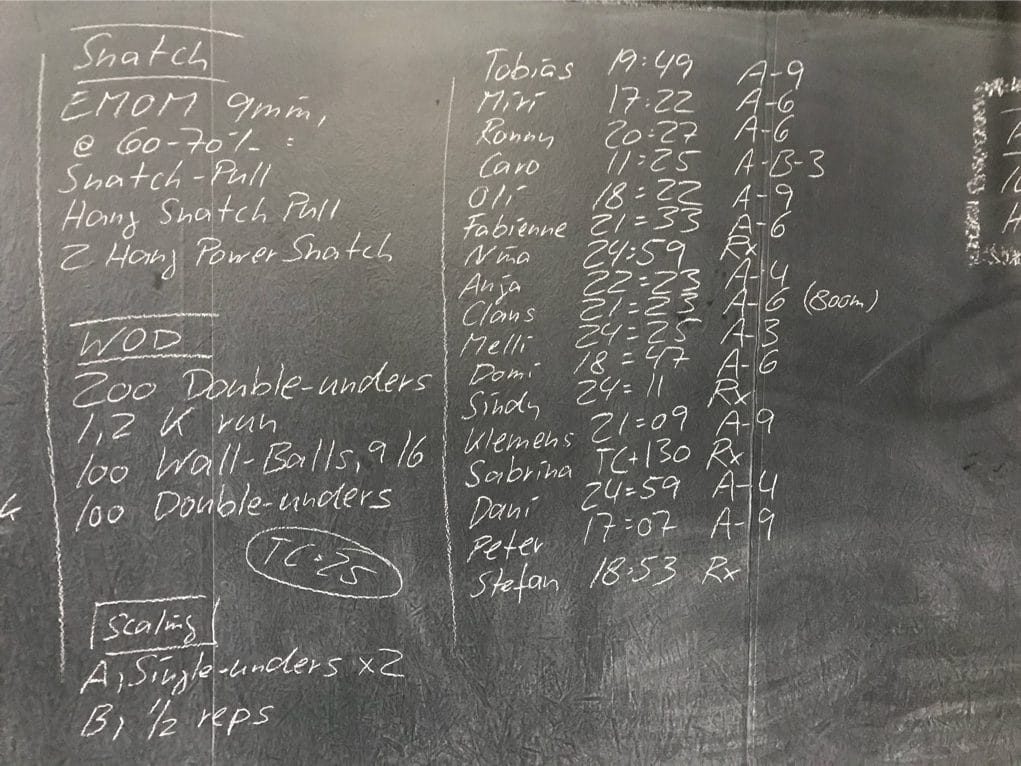 Snatch
EMOM 9min,
@ 60-70% :
Snatch-Pull
Hang Snatch Pull
2 Hang Power Snatch
WOD
200 Double-unders
1,2 K run
100 Wall-Balls, 9/6
100 Double-unders
TC=25
Scaling
A, Single-unders x2
B, 1/2 reps
Tobias 19:49 A-9
Miri 17:22 A-6
Ronny 20:27 A-6
Caro 11:25 A-B-3
Oli 18:22 A-9
Fabienne 21:33 A-6
Nina 24:59 Rx
Anja 22:23 A-4
Claus 21:23 A-6 (800m)
Melli 24:25 A-3
Domi 18:47 A-6
Sindy 24:11 Rx
Klemens 21:09 A-9
Sabrina TC+130 Rx
Dani 24:59 A-4
Peter 17:07 A-9
Stefan 18:53 Rx